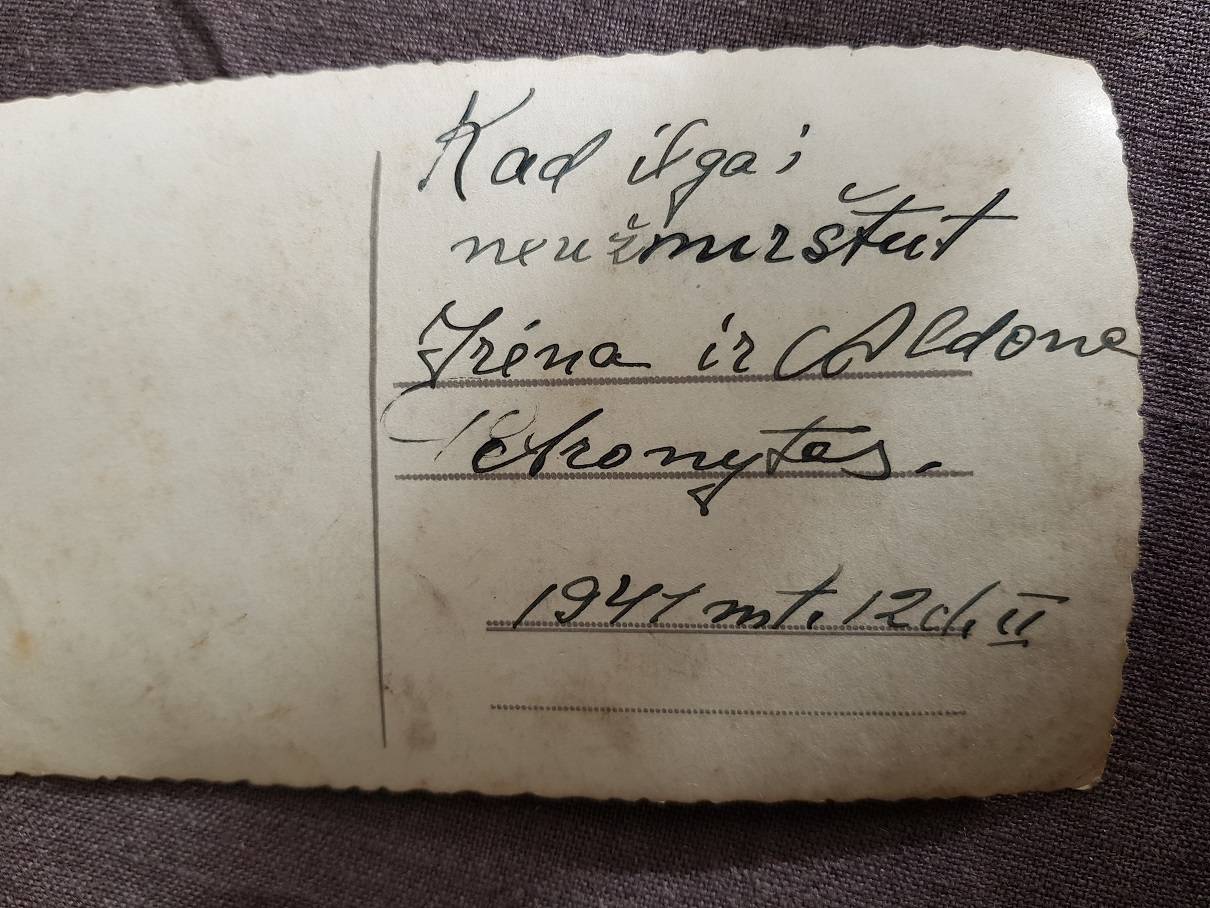 Kad ilgai
neužmirštut
Iréna ir Aldona
Petronytes.
1941 mt. 12 d. II